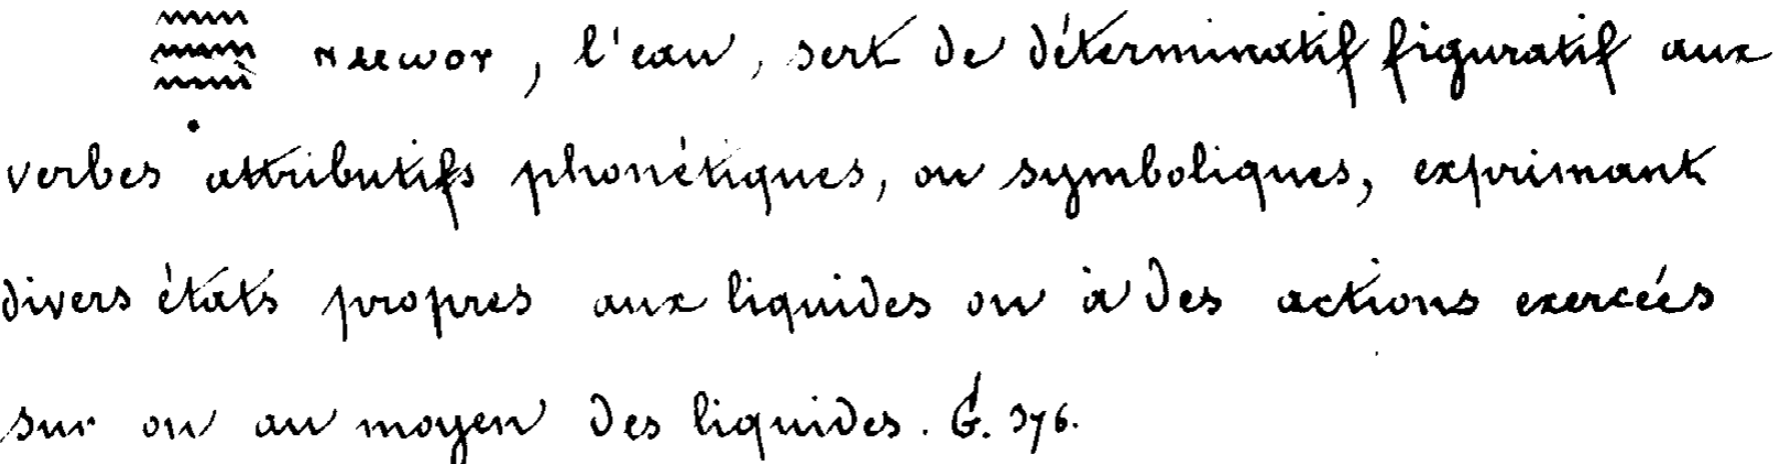 𓈗 ⲛⲙⲱⲟⲩ, l'eau, sert de déterminatif figuratif aux
verbes attributifs phonétiques, ou symboliques, exprimant
divers états propres aux liquides ou à des actions exercées
sur ou au moyen des liquides. G. 376.